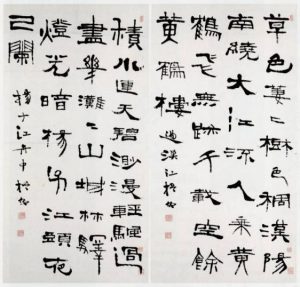 草色萋〻樹色稠漢陽
南繞大江流人乘黃
鶴飛無跡千載空餘
黃鶴樓 過漢江
積水連天碧渺漫輕颿過
盡幾灘〻山城林驛
燈光暗楊子江頭夜
已闌 揚子江舟中